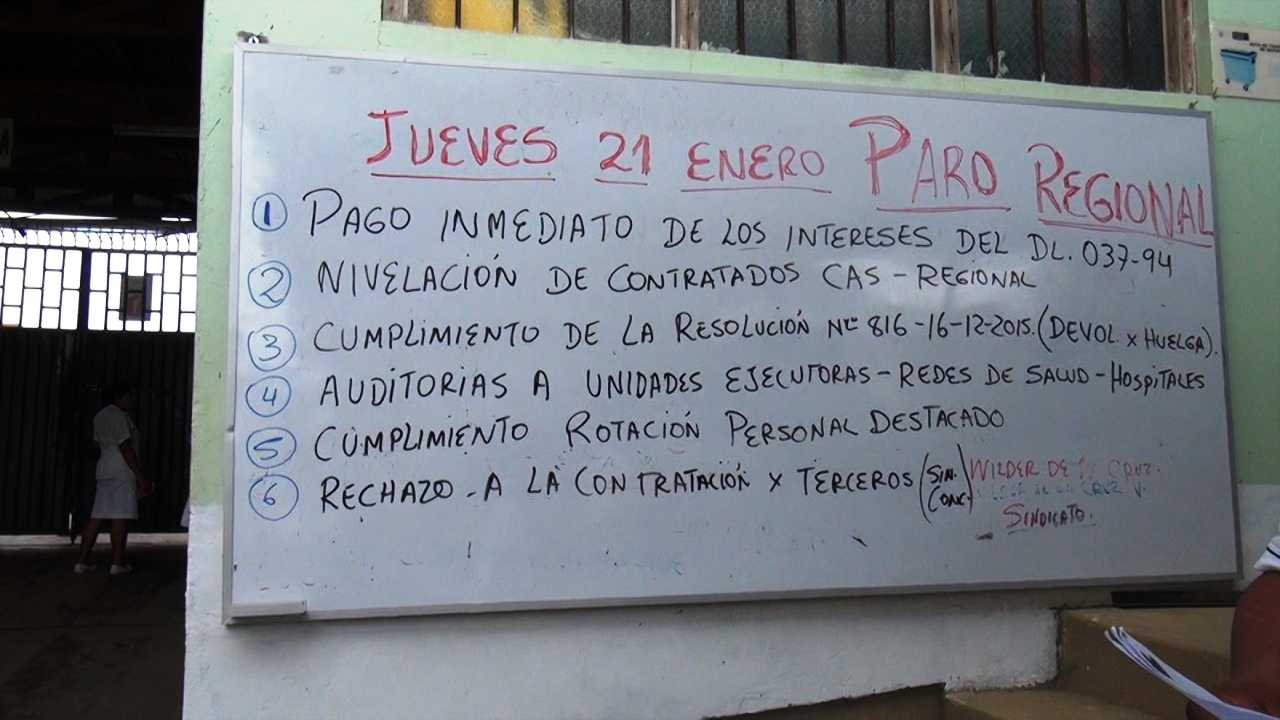 JUEVES 21 ENERO PARO REGIONAL
1 PAGO INMEDIATO DE LOS INTERESES DEL DL. 037-94
2 NIVELACIÓN DE CONTRATADOS CAS - REGIONAL
3 CUMPLIMIENTO DE LA RESOLUCIÓN Nº 816-16-12-2015. (DEVOL. x HUELGA).
4 AUDITORIAS A UNIDADES EJECUTORAS - REDES DE SALUD - HOSPITALES
5 CUMPLIMIENTO ROTACIÓN PERSONAL DESTACADO
6 RECHAZO - A LA CONTRATACIÓN x TERCEROS (SIN. CONC.) WILDER DE CRUZ.
SINDICATO.